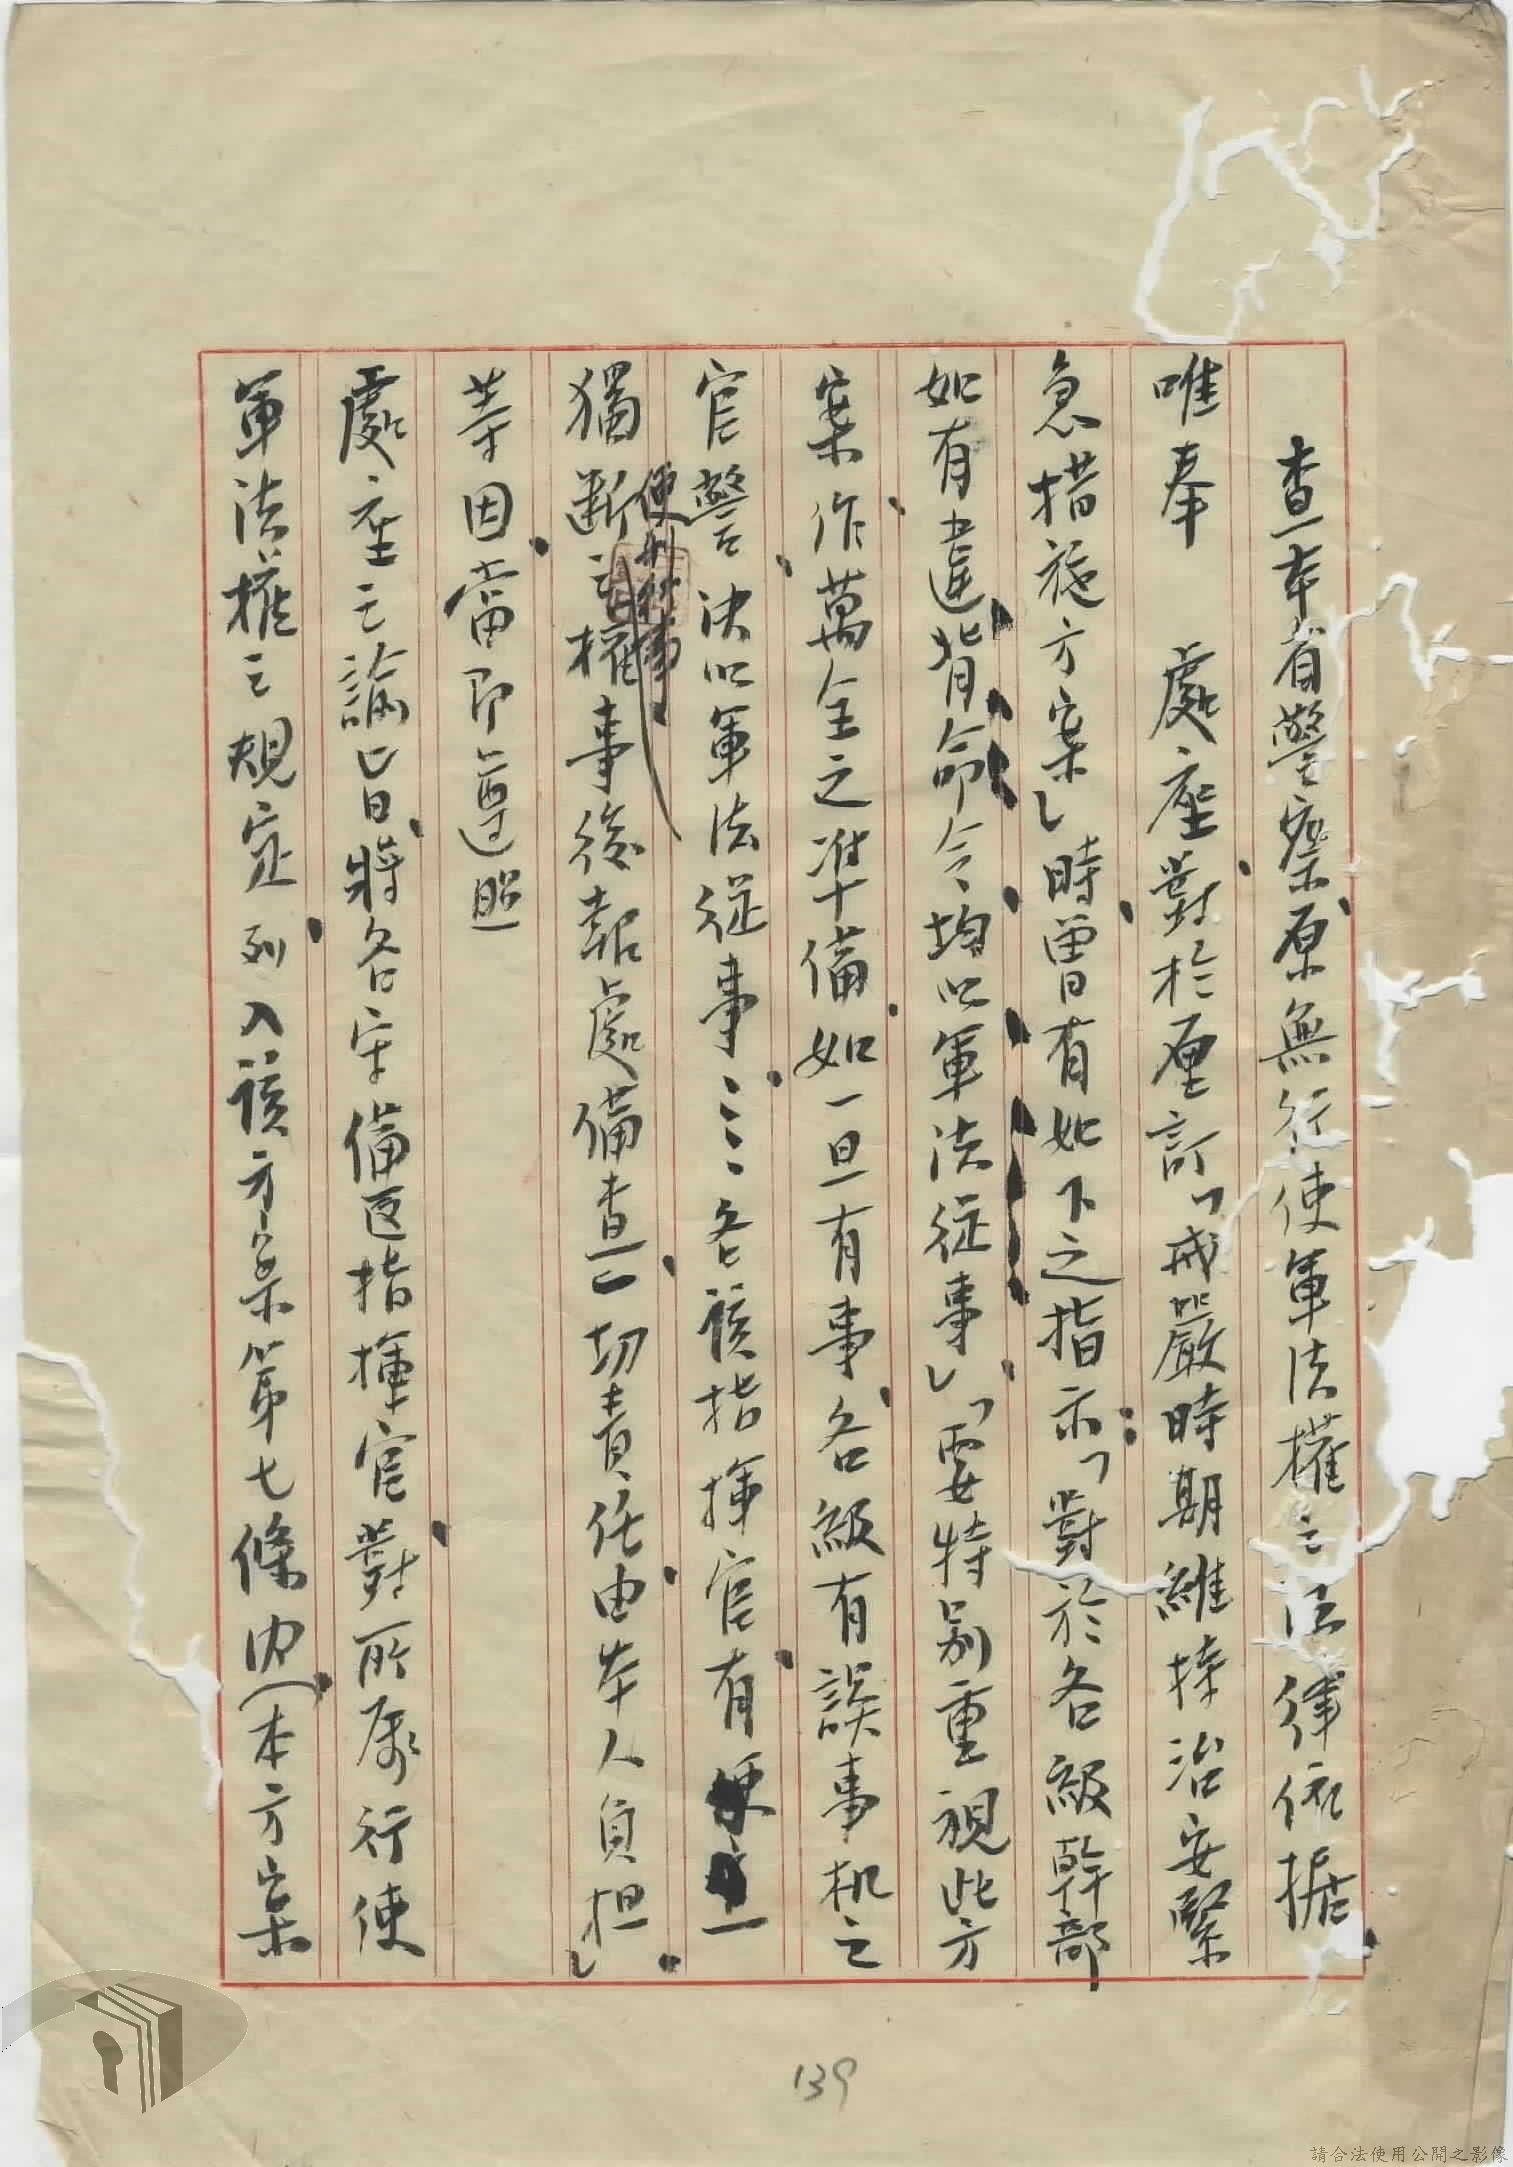 查本省警察原無行使軍法權之法律依據
唯奉　處座對於厘訂「戒嚴時期維持治安緊
急措施方案」時曾有如下之指示：「對於各級幹部
如有違背命令均以軍法從事」「要特別重視此方
案作萬全之準備如一旦有事各級有誤事机之
官警決以軍法從事……各該指揮官有
便利行事
獨斷之權事後報處備查一切責任由本人負担」
等因當即遵照
處座之諭旨將各守備區指揮官對所屬行使
軍法權之規定列入該方案第七條內（本方案
139
請合法使用公開之影像